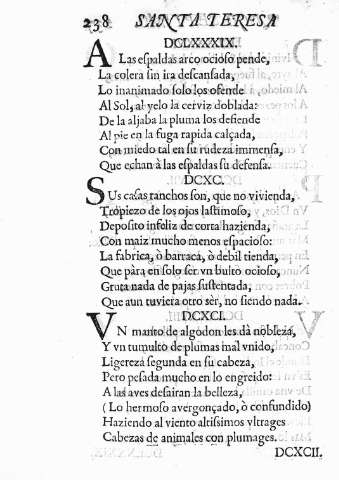 238 SANTA TERESA
DCLXXXIX.
A Las espaldas arco ocioso pende,
La colera sin ira descansada,
Lo inanimado solo los ofende
Al Sol, al yelo la cerviz doblada:
De la aljaba la pluma los defiende
Al pie en la fuga rapida calçada,
Con miedo tal en su rudeza immensa,
Que echan à las espaldas su defensa.
DCXC.
SUs casas ranchos son, que no vivienda,
Tropiezo de los ojos lastimoso,
Deposito infeliz de corta hazienda,
Con maiz mucho menos espacioso:
La fabrica, ò barraca, ò debil tienda,
Que pàra en solo ser vn bulto ocioso,
Gruta nada de pajas sustentada,
Que aun tuviera otro ser, no siendo nada.
DCXCI.
VN manto de algodon les dà nobleza,
Y vn tumulto de plumas mal vnido,
Ligereza segunda en su cabeza,
Pero pesada mucho en lo engreido:
A las aves desairan la belleza,
( Lo hermoso avergonçado, ò confundido)
Haziendo al viento altisimos vltrages
Cabezas de animales con plumages.
DCXCII.